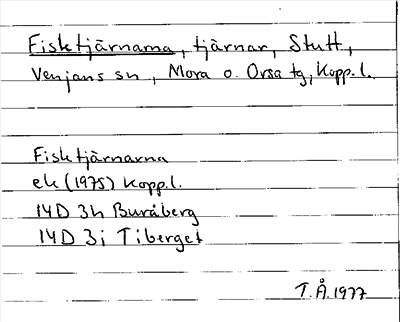 Fisktjärnarna, tjärnar, Stutt,
Venjans sn, Mora o. Orsa tg, Kopp. l.
Fisktjärnarna
ek (1975) Kopp. l.
14D 3h Buråberg
14D 3i Tiberget
T.Å. 1977